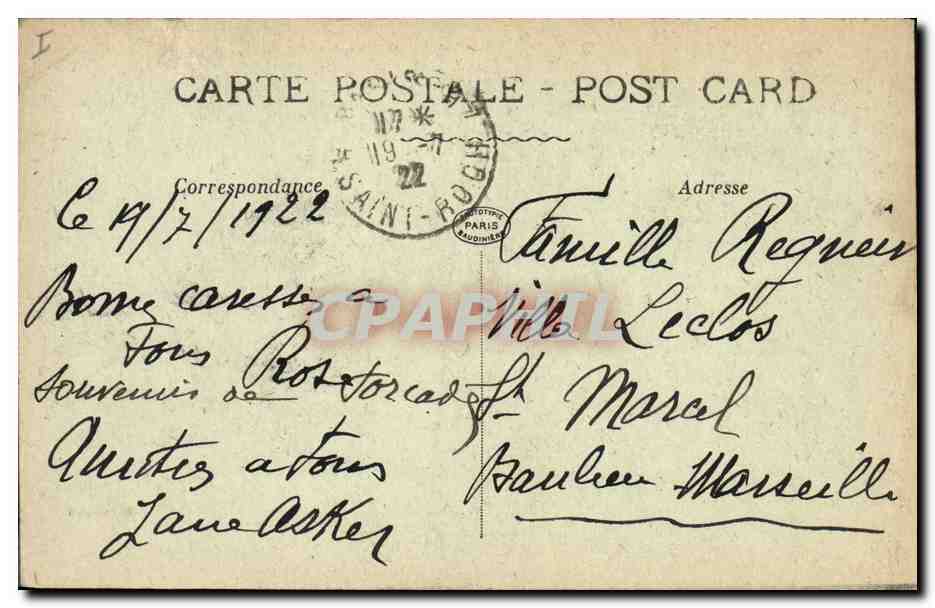 I
CARTE POSTALE - POST CARD
17 *
19 - 7
22
* SAINT-ROCH
Correspondance
Adresse
PHOTOTYPIE
PARIS
BAUDINIÈRE
CPAPHIL
Le 19/7/1922
Bonne caresses a
Tous Rose
souvenirs de Forcade
Amitiés a Tous
Jane Asker
Famille Regnier
Villa Leclos
St Marcel
Banlieue Marseille